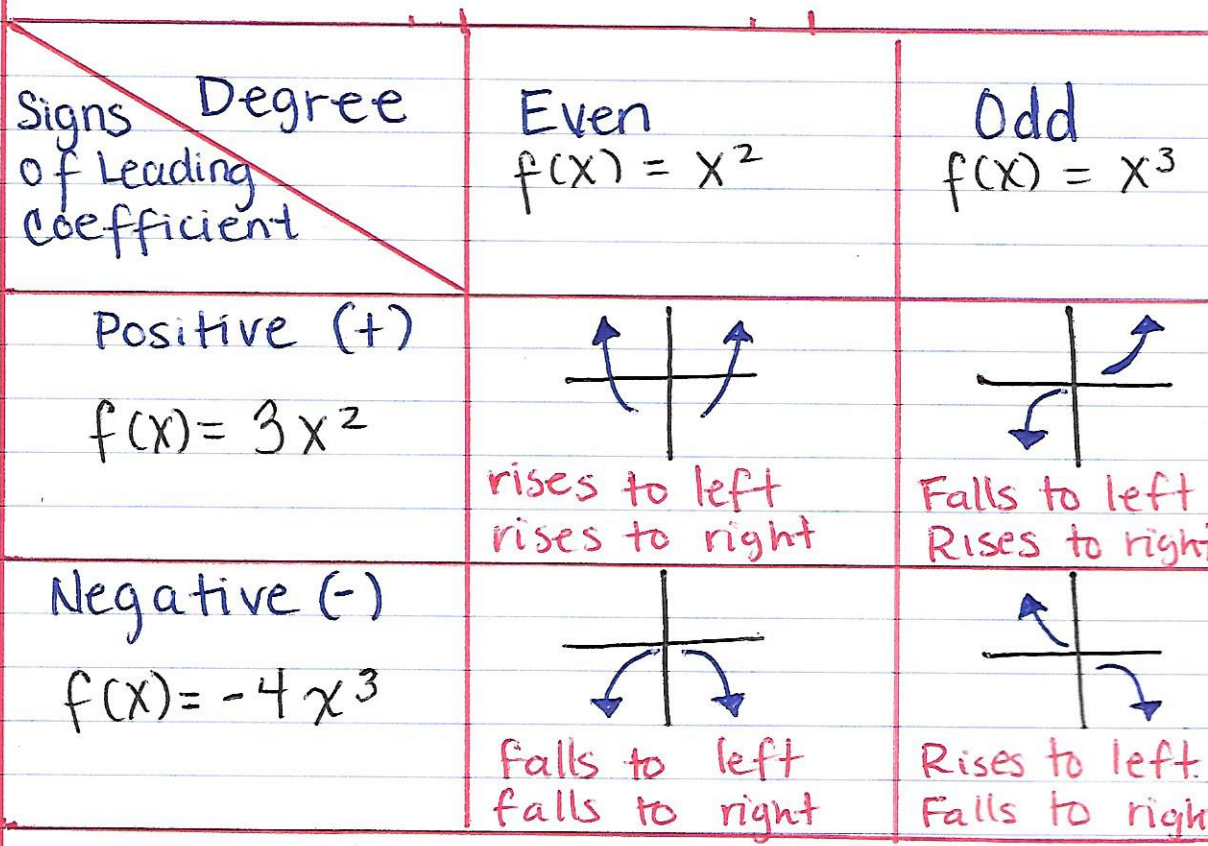 Degree
Signs
of Leading
Coefficient
Even
f(x) = x²
Odd
f(x) = x³
Positive (+)
f(x) = 3x²
rises to left
rises to right
Falls to left
Rises to right
Negative (-)
f(x) = -4x³
falls to left
falls to right
Rises to left.
Falls to righ